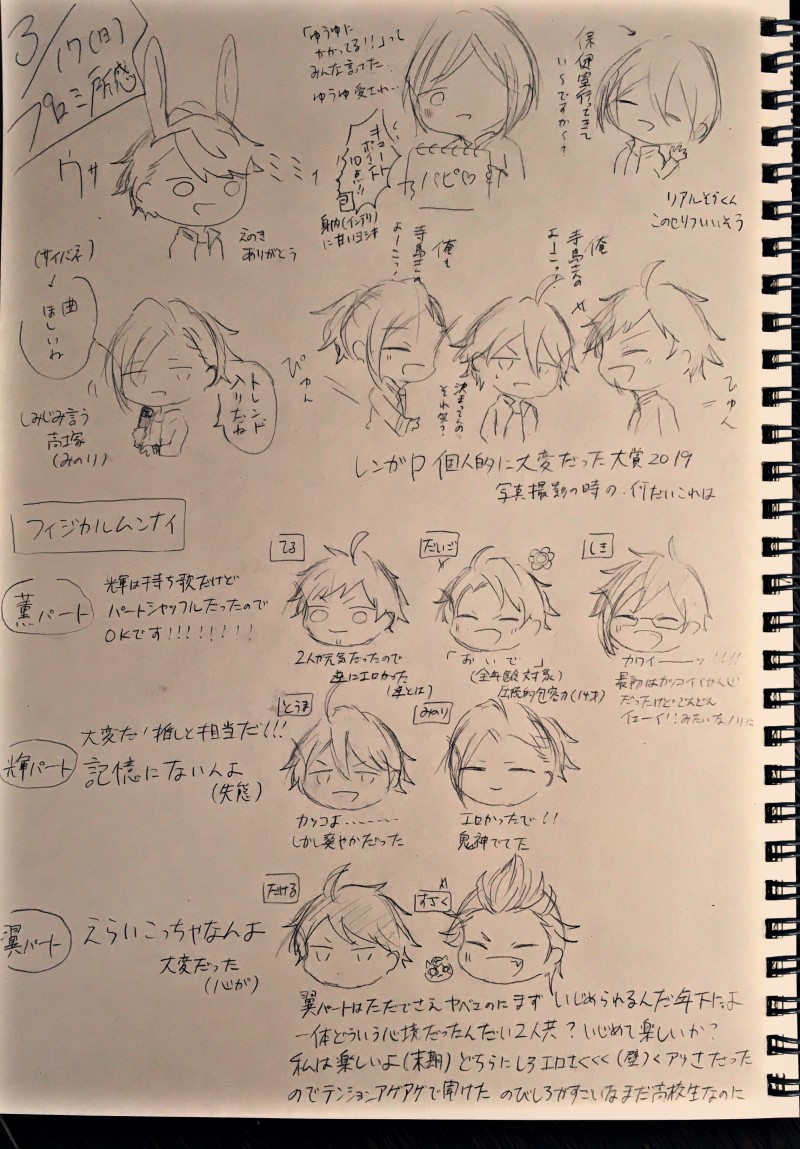 3/17(日)
プロミ所感
ウサ
ミミィ
えのき
ありがとう
「ゆうゆに
かかってる!!」って
みんな言ってた
ゆうゆ愛され…
キュート
ポイント
10点!!
身内(インテリ)
に甘いヨシキ
保健室行ってきて
い〜ですか〜?
リアルそらくん
このセリフいいそう
(サイバネ)
↓
曲
ほしいね
トレンド
入りだね
しみじみ言う
高塚
(みのり)
俺も
寺島さんの
よーこっ!
俺
寺島さんの
よーこっ!
ぴゅん
決まってんの
それ笑?
ひゅん
レンガP個人的に大変だった大賞2019
写真撮影の時の.何だいこれは
フィジカルムンナイ
薫パート
輝は持ち歌だけど
パートシャッフルだったので
OKです!!!!!!!!
てる
2人が元気だったので
逆にエロかった
(逆とは)
だいご
「おいで」
(全年齢対象)
圧倒的包容力(14才)
しき
カワイーーッ!!!!
最初はカッコイイかんじ
だったけどどんどん
イェーイ!!みたいなノリに
輝パート
大変だ!推しと担当だ!!!
記憶にないんよ
(失態)
とうま
カッコよ………
しかし爽やかだった
みのり
エロかったで!!
鬼神でてた
翼パート
えらいこっちゃなんよ
大変だった
(心が)
たける
すざく
翼パートはただでさえヤベェのにまずいじめられるんだ年下によ
一体どういう心境だったんだい2人共?いじめて楽しいか?
私は楽しいよ(末期)どちらにしろエロさ<<<(壁)<アツさだった
のでテンションアゲアゲで聞けた のびしろがすごいなまだ高校生なのに